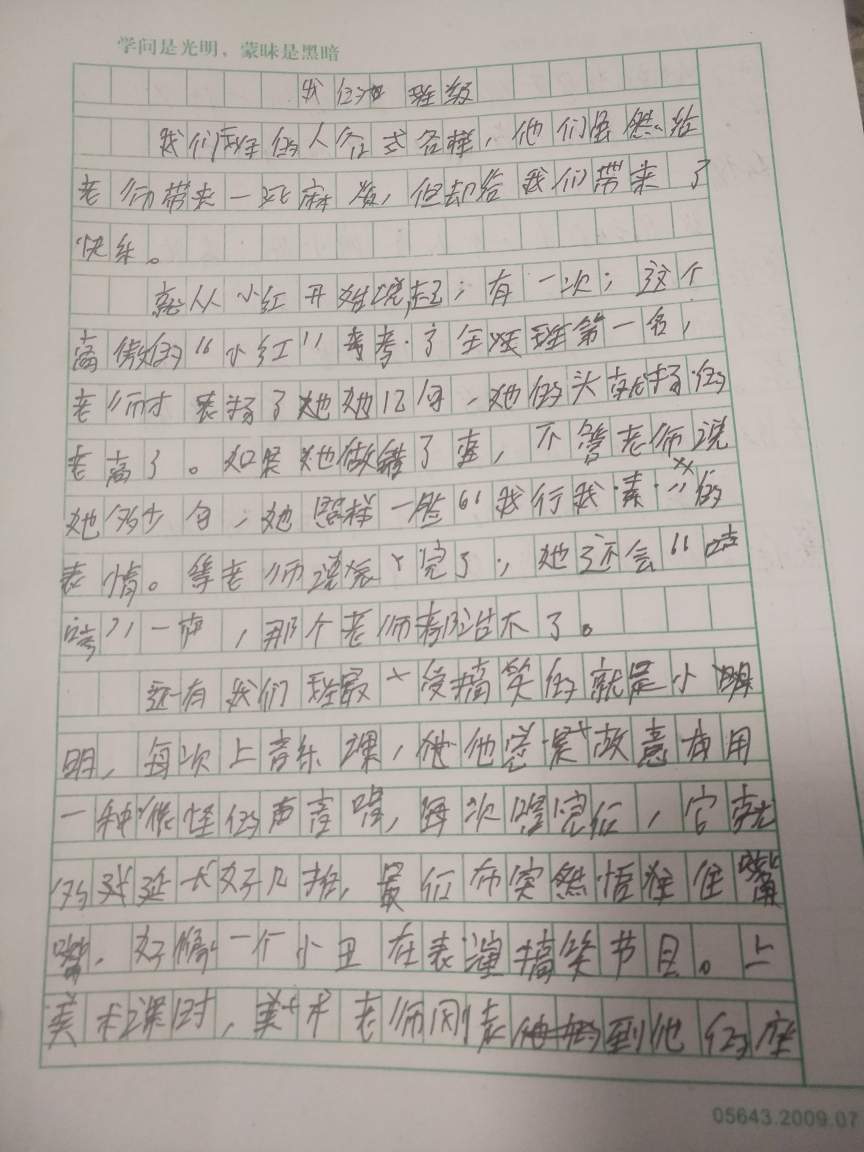 学问是光明，蒙昧是黑暗
我的 班级
我们班的人各式各样，他们虽然给
老师带来一些麻烦，但却给我们带来了
快乐。
就从小红开始说起；有一次；这个
高傲的“小红”考了全班第一名，
老师才表扬了她几句，她的头就扬的
老高了。如果她做错了事，不管老师说
她多少句，她照样一脸“我行我素”的
表情。等老师说完了，她还会“
”一声，那个老师都不了。
还有我们班最搞笑的就是小明
明，每次上音乐课，他故意用
一种怪怪的声音唱，每次唱完，它就
的延长好几拍，最后而突然捂住嘴
嘴，好像一个小丑在表演搞笑节目。上
美术课时，美术老师刚走到他的座
05643.2009.07